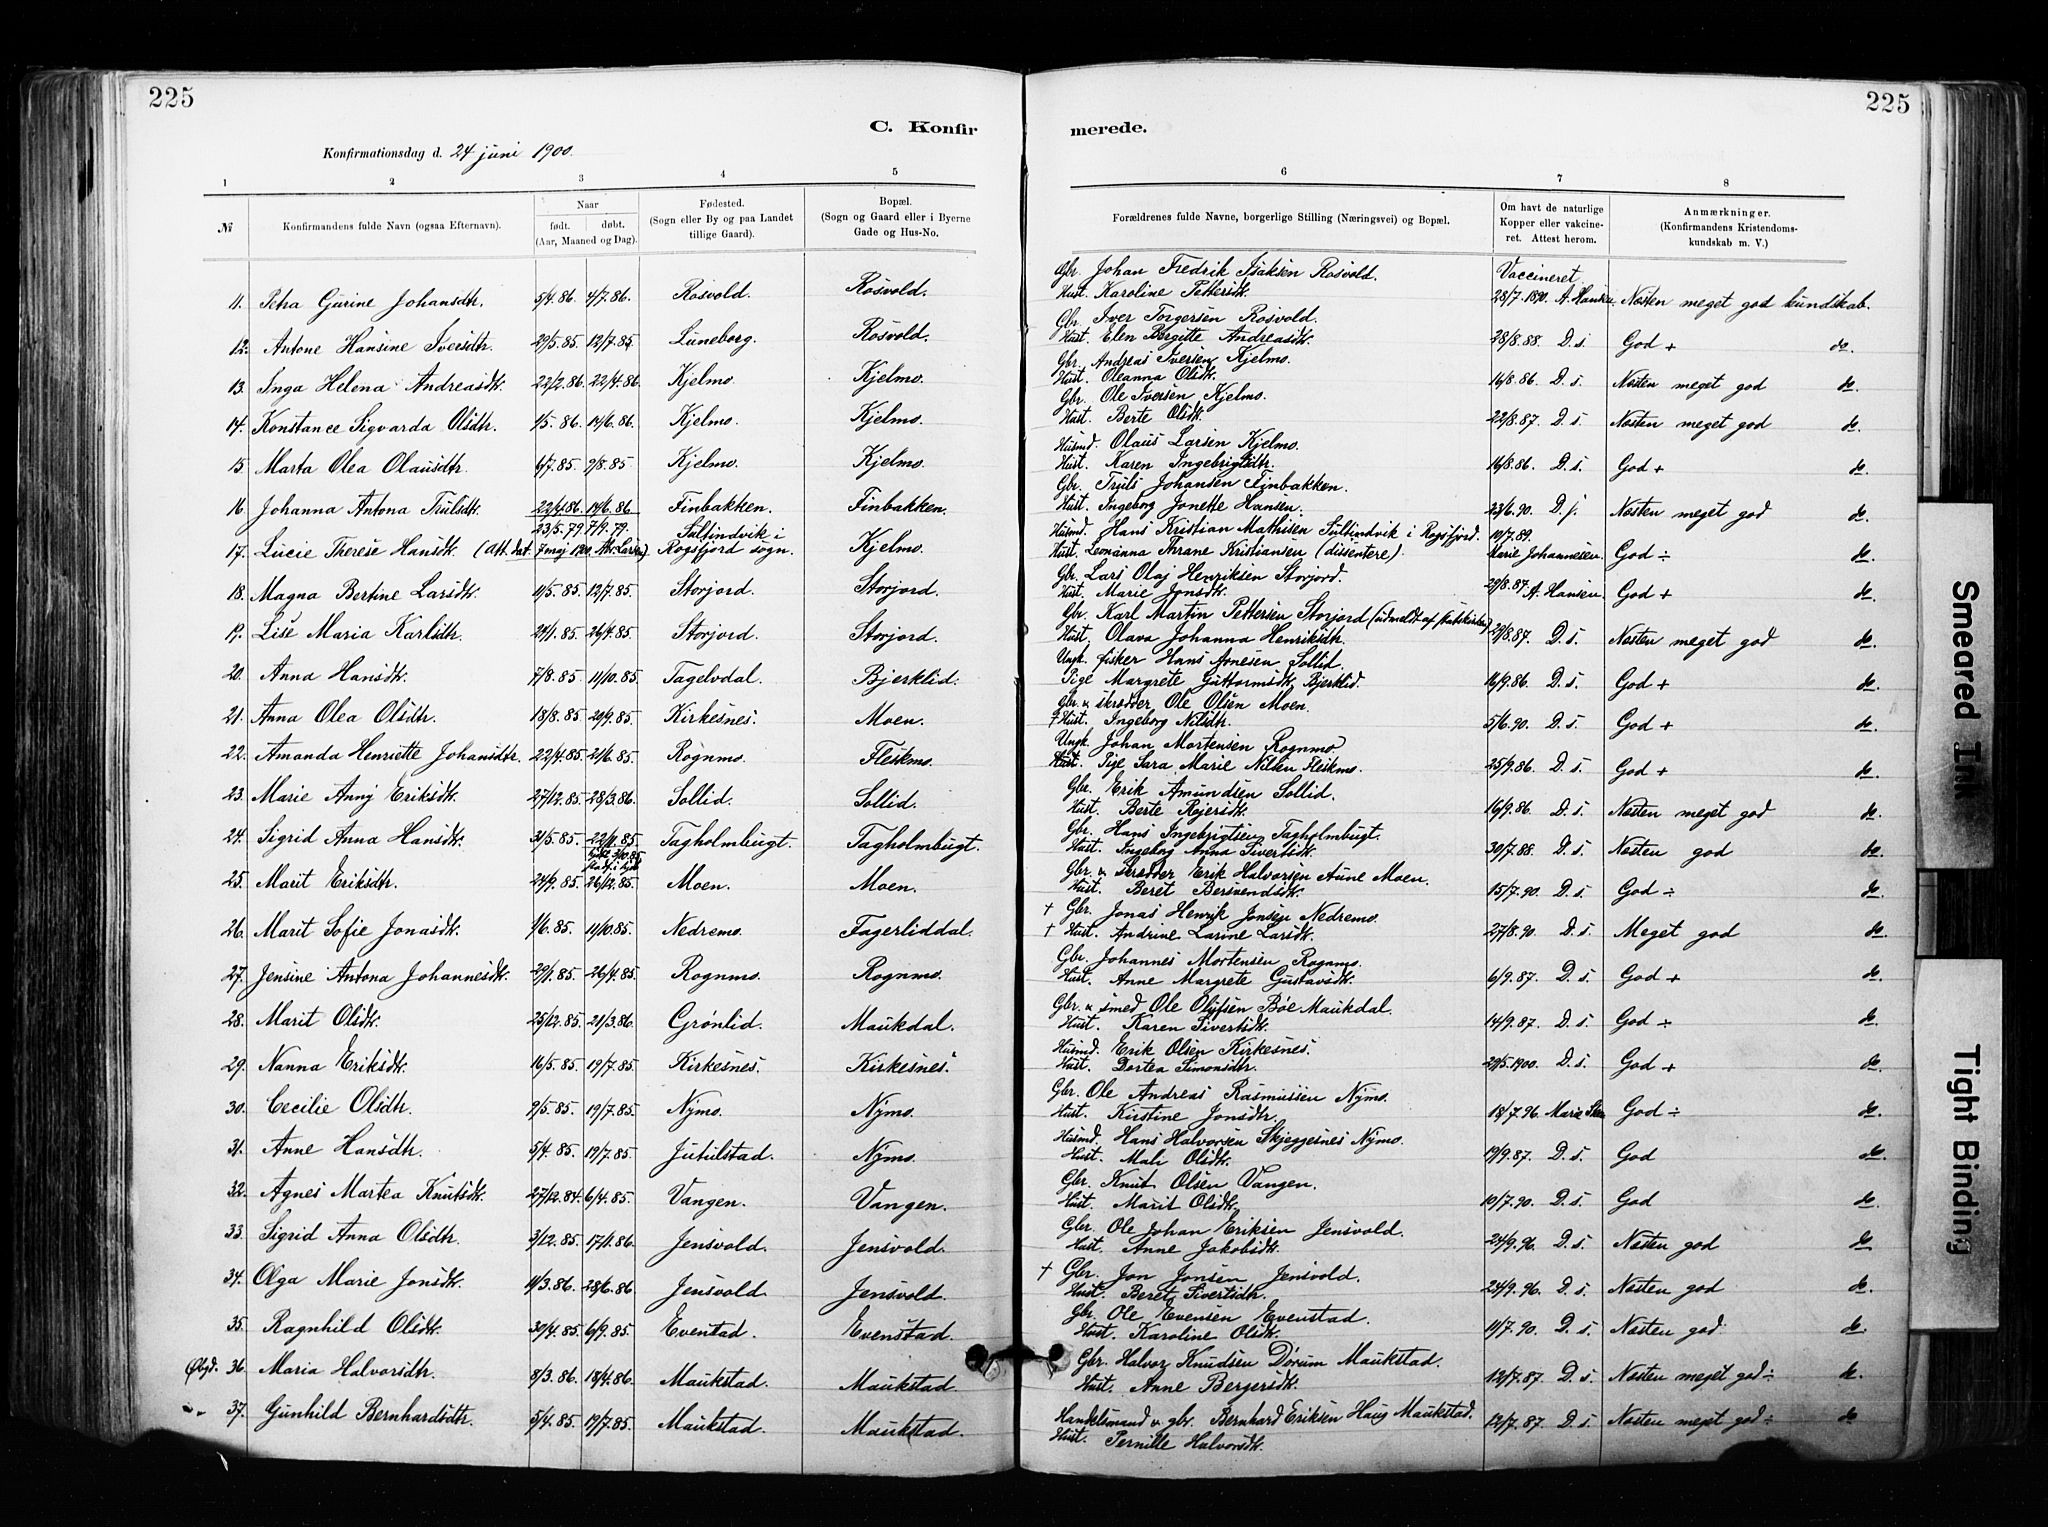 225
225
C. Konfir
merede.
Konfirmationsdag d. 24 juni 1900.
1 2 3 4 5 6 7 8
№ Konfirmandens fulde Navn (ogsaa Efternavn). Naar født. døbt. (Aar, Maaned og Dag). Fødested. (Sogn eller By og paa Landet tillige Gaard). Bopæl. (Sogn og Gaard eller i Byerne Gade og Hus-No. Forældrenes fulde Navne, borgerlige Stilling (Næringsvei) og Bopæl. Om havt de naturlige Kopper eller vakcineret. Attest herom. Anmærkninger. (Konfirmandens Kristendomskundskab m. V.)
Gbr. Johan Fredrik Isaksen Rosvold. Vaccineret
11. Petra Gurine Johansdtr. 5/4.86. 4/7.86. Rosvold. Rosvold. Hust. Karoline Pettersdtr. 28/7.1890. A. Hansen Næsten meget god kundskab.
Gbr. Iver Torgersen Rosvold.
12. Antone Hansine Iversdtr. 29/5.85. 12/7.85. Luneborg. Rosvold. Hust. Elen Birgitte Andreasdtr. 28/8.88. D. s. God + do.
Gbr. Andreas Iversen Kjelmo.
13. Inga Helena Andreasdtr. 22/2.86. 22/4.86. Kjelmo. Kjelmo. Hust. Oleanna Olsdtr. 16/8.86. D. s. Næsten meget god do.
Gbr. Ole Iversen Kjelmo.
14. Konstance Sigvarda Olsdtr. 1/5.86. 14/6.86. Kjelmo. Kjelmo. Hust. Berte Olsdtr. 22/8.87. D. s. Næsten meget god do.
Husmd. Olaus Larsen Kjelmo.
15. Marta Olea Olausdtr. 6/7.85. 9/8.85. Kjelmo. Kjelmo. Hust. Karen Ingebrigtsdtr. 16/8.86. D. s. God + do.
Gbr. Truls Johansen Finbakken.
16. Johanna Antona Trulsdtr. 22/4.86. 14/6.86. Finbakken. Finbakken. Hust. Ingeborg Jonette Hansen. 23/6.90. D. s. Næsten meget god do.
23/5.79. 7/9.79. Sultindvik i Husmd. Hans Kristian Mathisen Sultindvik i Rogsfjord. 10/7.89.
17. Lucie Therese Hansdtr. (Att. dat. 7 maj 1900. Larsen) Rogsfjord sogn. Kjelmo. Hust. Leonanna Thrane Kristiansen (dissentere) Marie Johannesen. God ÷ do.
Gbr. Lars Olaj Henriksen Storjord.
18. Magna Bertine Larsdtr. 11/5.85. 12/7.85. Storjord. Storjord. Hust. Marie Jonsdtr. 29/8.87. A. Hansen. God + do.
Gbr. Karl Martin Pettersen Storjord (udmeldt af statskirken)
19. Lise Maria Karlsdtr. 24/1.85. 26/4.85. Storjord. Storjord. Hust. Olava Johanna Henriksdtr. 29/8.87. D. s. Næsten meget god do.
Ungk. fisker Hans Arnesen Sollid.
20. Anna Hansdtr. 7/8.85. 11/10.85. Tagelvdal. Bjerklid. Pige Margrete Guttormsdtr. Bjerklid. 16/9.86. D. s. God + do.
Gbr. & skrædder Ole Olsen Moen.
21. Anna Olea Olsdtr. 18/8.85. 20/9.85. Kirkesnes. Moen. † Hust. Ingeborg Nilsdtr. 5/6.90. D. s. God + do.
Ungk. Johan Mortensen Rognmo.
22. Amanda Henriette Johansdtr. 22/4.85. 21/6.85. Rognmo. Fleskmo. Hust. Pige Sara Marie Nilsen Fleskmo. 25/9.86. D. s. God + do.
Gbr. Erik Amundsen Sollid.
23. Marie Anny Eriksdtr. 27/12.85. 28/3.86. Sollid. Sollid. Hust. Berte Rejersdtr. 16/9.86. D. s. Næsten meget god do.
Gbr. Hans Ingebrigtsen Tagholmbugt.
24. Sigrid Anna Hansdtr. 31/5.85. 22/11.85. Tagholmbugt. Tagholmbugt. Hust. Ingeborg Anna Sivertsdtr. 30/7.88. D. s. Næsten god do.
Gbr. & skrædder Erik Halvorsen Aune Moen.
25. Marit Eriksdtr. 24/9.85. 26/12.85. Moen. Moen. Hust. Beret Bersvendsdtr. 15/7.90. D. s. God ÷ do.
† Gbr. Jonas Henrik Jonsen Nedremo.
26. Marit Sofie Jonasdtr. 1/6.85. 11/10.85. Nedremo. Fagerliddal. † Hust. Andrine Larine Larsdtr. 27/8.90. D. s. Meget god do.
Gbr. Johannes Mortensen Rognmo.
27. Jensine Antona Johannesdtr. 29/1.85. 26/4.85. Rognmo. Rognmo. Hust. Anne Margrete Gustavsdtr. 6/9.87. D. s. God + do.
Gbr. & smed Ole Olufsen Bøe Maukdal.
28. Marit Olsdtr. 25/12.85. 21/3.86. Grønlid. Maukdal. Hust. Karen Sivertsdtr. 14/9.87. D. s. God ÷ do.
Husmd. Erik Olsen Kirkesnes.
29. Nanna Eriksdtr. 16/5.85. 19/7.85. Kirkesnes. Kirkesnes. Hust. Dortea Simonsdtr. 29/5.1900. D. s. God + do.
Gbr. Ole Andreas Rasmussen Nymo.
30. Cecilie Olsdtr. 9/5.85. 19/7.85. Nymo. Nymo. Hust. Kirstine Jonsdtr. 18/7.96. Marie God ÷ do.
Husmd. Hans Halvorsen Skjeggesnes Nymo.
31. Anne Hansdtr. 5/4.85. 19/7.85. Jutulstad. Nymo. Hust. Mali Olsdtr. 19/9.87. D. s. God do.
Gbr. Knut Olsen Vangen.
32. Agnes Martea Knutsdtr. 27/12.84. 6/4.85. Vangen. Vangen. Hust. Marit Olsdtr. 10/7.90. D. s. God do.
Gbr. Ole Johan Eriksen Jensvold.
33. Sigrid Anna Olsdtr. 3/12.85. 17/1.86. Jensvold. Jensvold. Hust. Anne Jakobsdtr. 24/9.96. D. s. Næsten god do
† Gbr. Jon Jonsen Jensvold.
34. Olga Marie Jonsdtr. 11/3.86. 28/6.86. Jensvold. Jensvold. Hust. Beret Sivertsdtr. 24/9.96. D. s. Næsten god do.
Gbr. Ole Evensen Evenstad.
35. Ragnhild Olsdtr. 30/4.85. 6/9.85. Evenstad. Evenstad. Hust. Karoline Olsdtr. 11/7.90. D. s. Næsten god do.
Gbr. Halvor Knudsen Dørum Maukstad.
Øbgd. 36. Maria Halvorsdtr. 8/3.86. 18/4.86. Maukstad. Maukstad. Hust. Anne Bergersdtr. 12/7.87. D. s. Næsten meget god ÷ do.
Handelsmand & gbr. Bernhard Eriksen Haug Maukstad.
37. Gunhild Bernhardsdtr. 5/4.85. 19/7.85. Maukstad. Maukstad. Hust. Pernille Halvorsdtr. 12/7.87. D. s. Næsten meget god ÷ do
Smeared Ink
Tight Binding